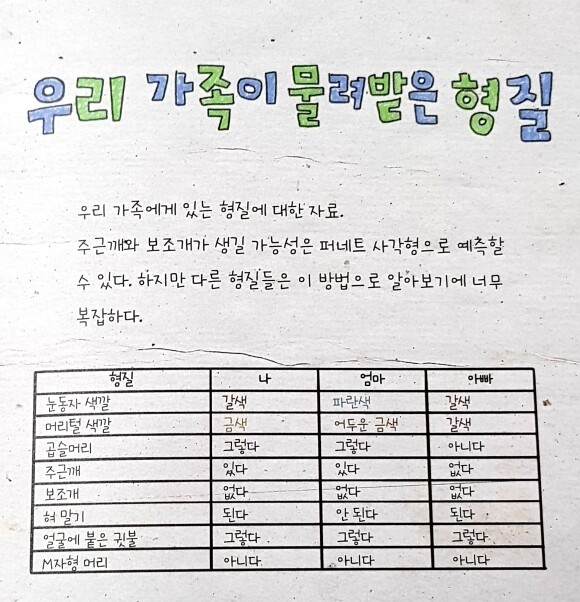 우리 가족이 물려받은 형질
우리 가족에게 있는 형질에 대한 자료.
주근깨와 보조개가 생길 가능성은 퍼네트 사각형으로 예측할
수 있다. 하지만 다른 형질들은 이 방법으로 알아보기에 너무
복잡하다.
형질 나 엄마 아빠
눈동자 색깔 갈색 파란색 갈색
머리털 색깔 금색 어두운 금색 갈색
곱슬머리 그렇다 그렇다 아니다
주근깨 있다 있다 없다
보조개 없다 없다 없다
혀 말기 된다 안 된다 된다
얼굴에 붙은 귓불 그렇다 그렇다 그렇다
M자형 머리 아니다 아니다 아니다